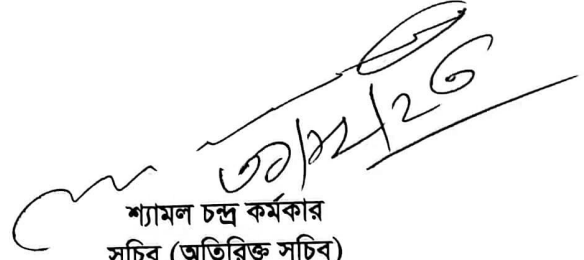 শ্যামল চন্দ্র কর্মকার
সচিব (অতিরিক্ত সচিব)